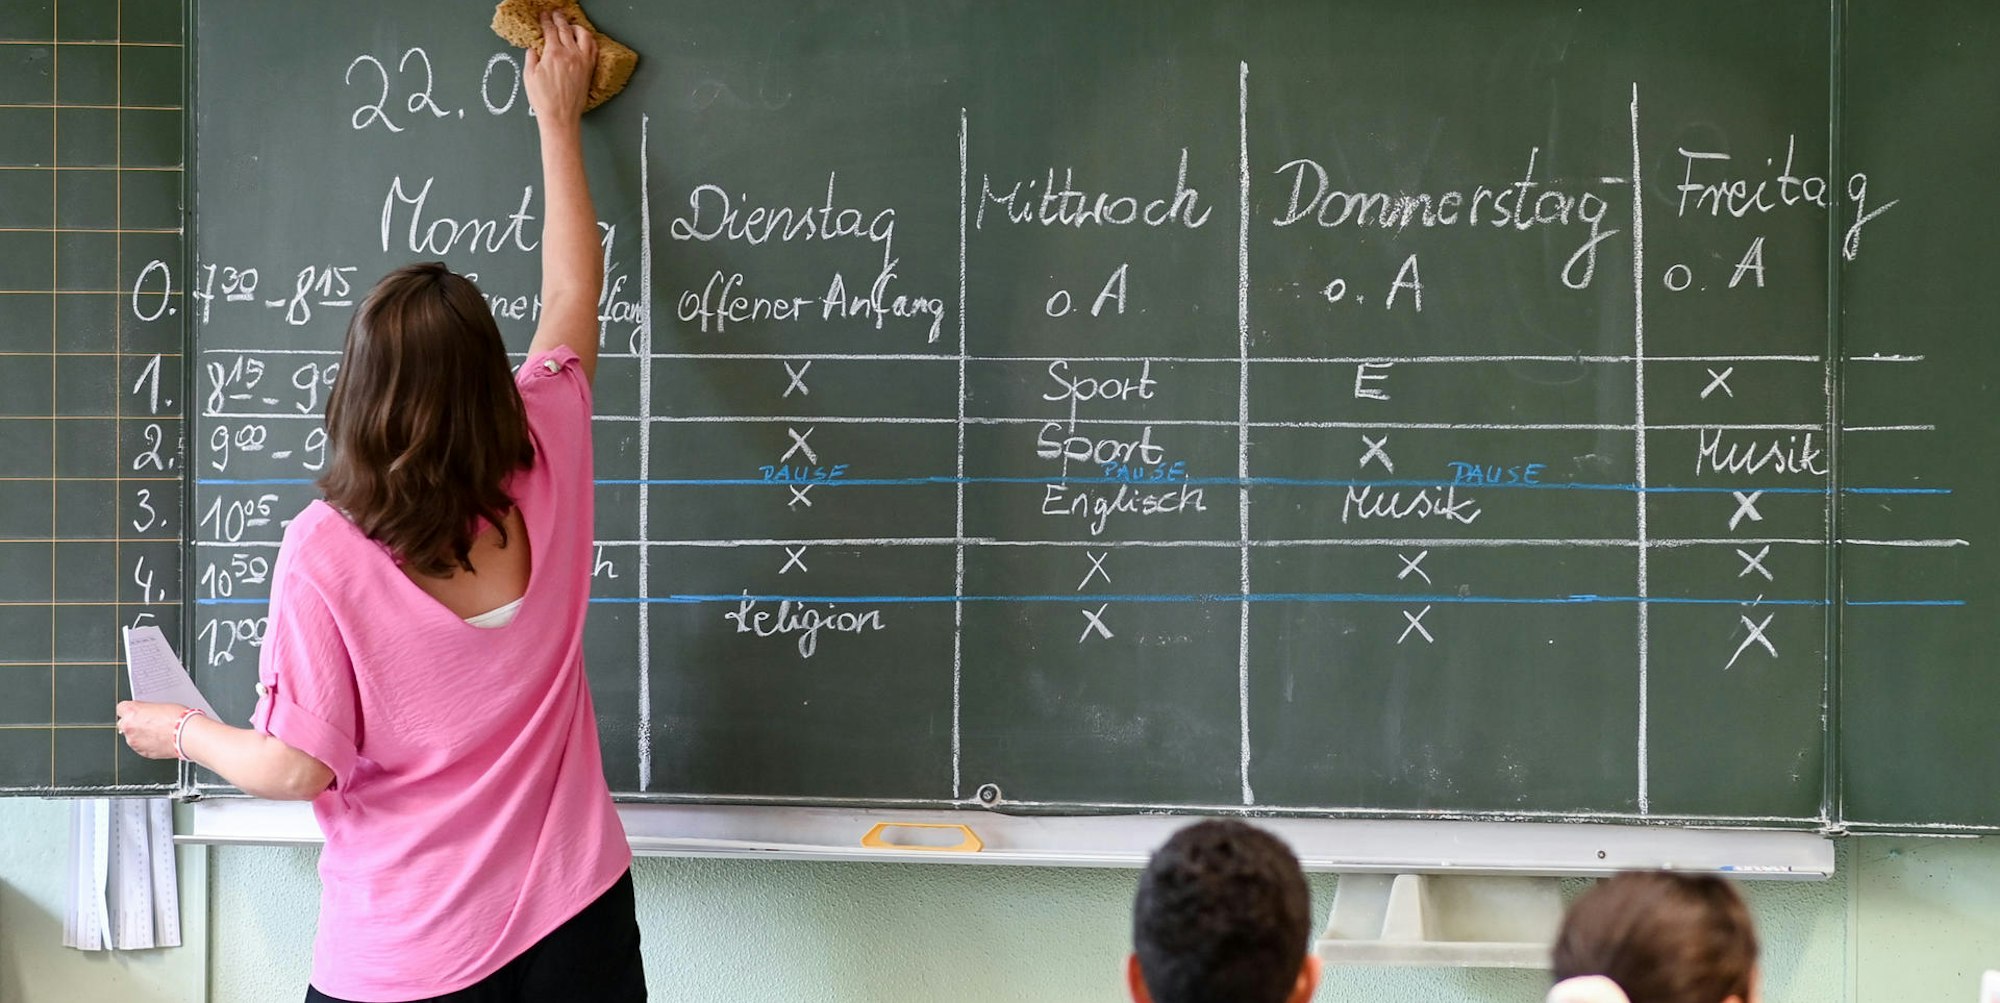 22.0
Montag Dienstag Mittwoch Donnerstag Freitag
0. 7³⁰ - 8¹⁵ offener Anfang offener Anfang o. A. o. A o. A
1. 8¹⁵ - 9⁰⁰ X Sport E X
2. 9⁰⁰ - 9 X Sport X Musik
PAUSE PAUSE PAUSE
3. 10⁰⁵ - X Englisch Musik X
4. 10⁵⁰ h X X X X
12⁰⁰ Religion X X X